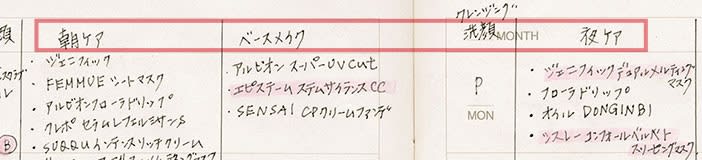 朝ケア
・ジェニフィック
・FEMMUE シートマスク
・アルビオンフローラドリップ
・クレポ セラムレフェルミサンS
・SUQQUインテンスリッチクリーム
ベースメイク
・アルビオン スーパーUV Cut
・エピステーム ステムサイエンスCC
・SENSAI CPクリームファンデ
クレンジング
洗顔
MONTH
?
MON
夜ケア
・ジェニフィックデュアルメルティング
マスク
・フローラドリップ
・オイル DONGINBI
・シスレー コンフォールベルベット
スリーピングマスク
B